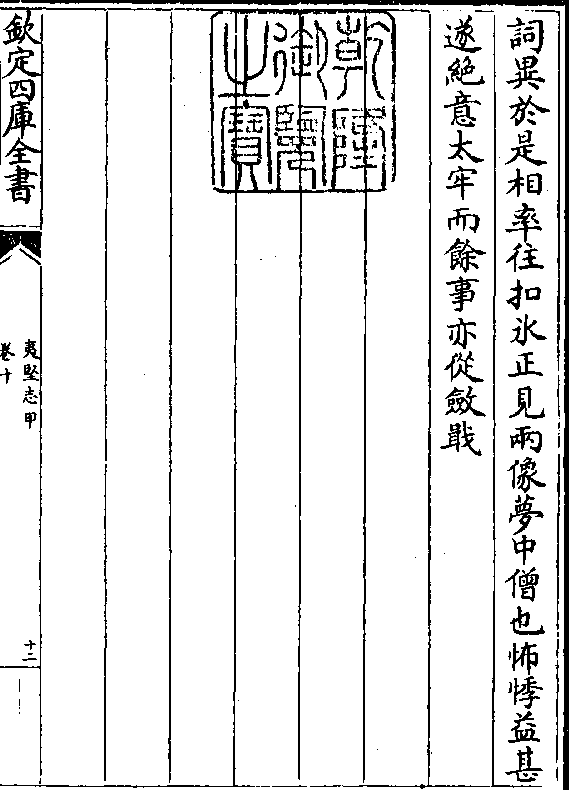 詞異於是相率往扣氷正見兩像夢中僧也怖悸益甚
遂絕意太牢而餘事亦從斂戢
乾隆
御覽
之寶
欽定四庫全書
夷堅志甲
卷十
十二